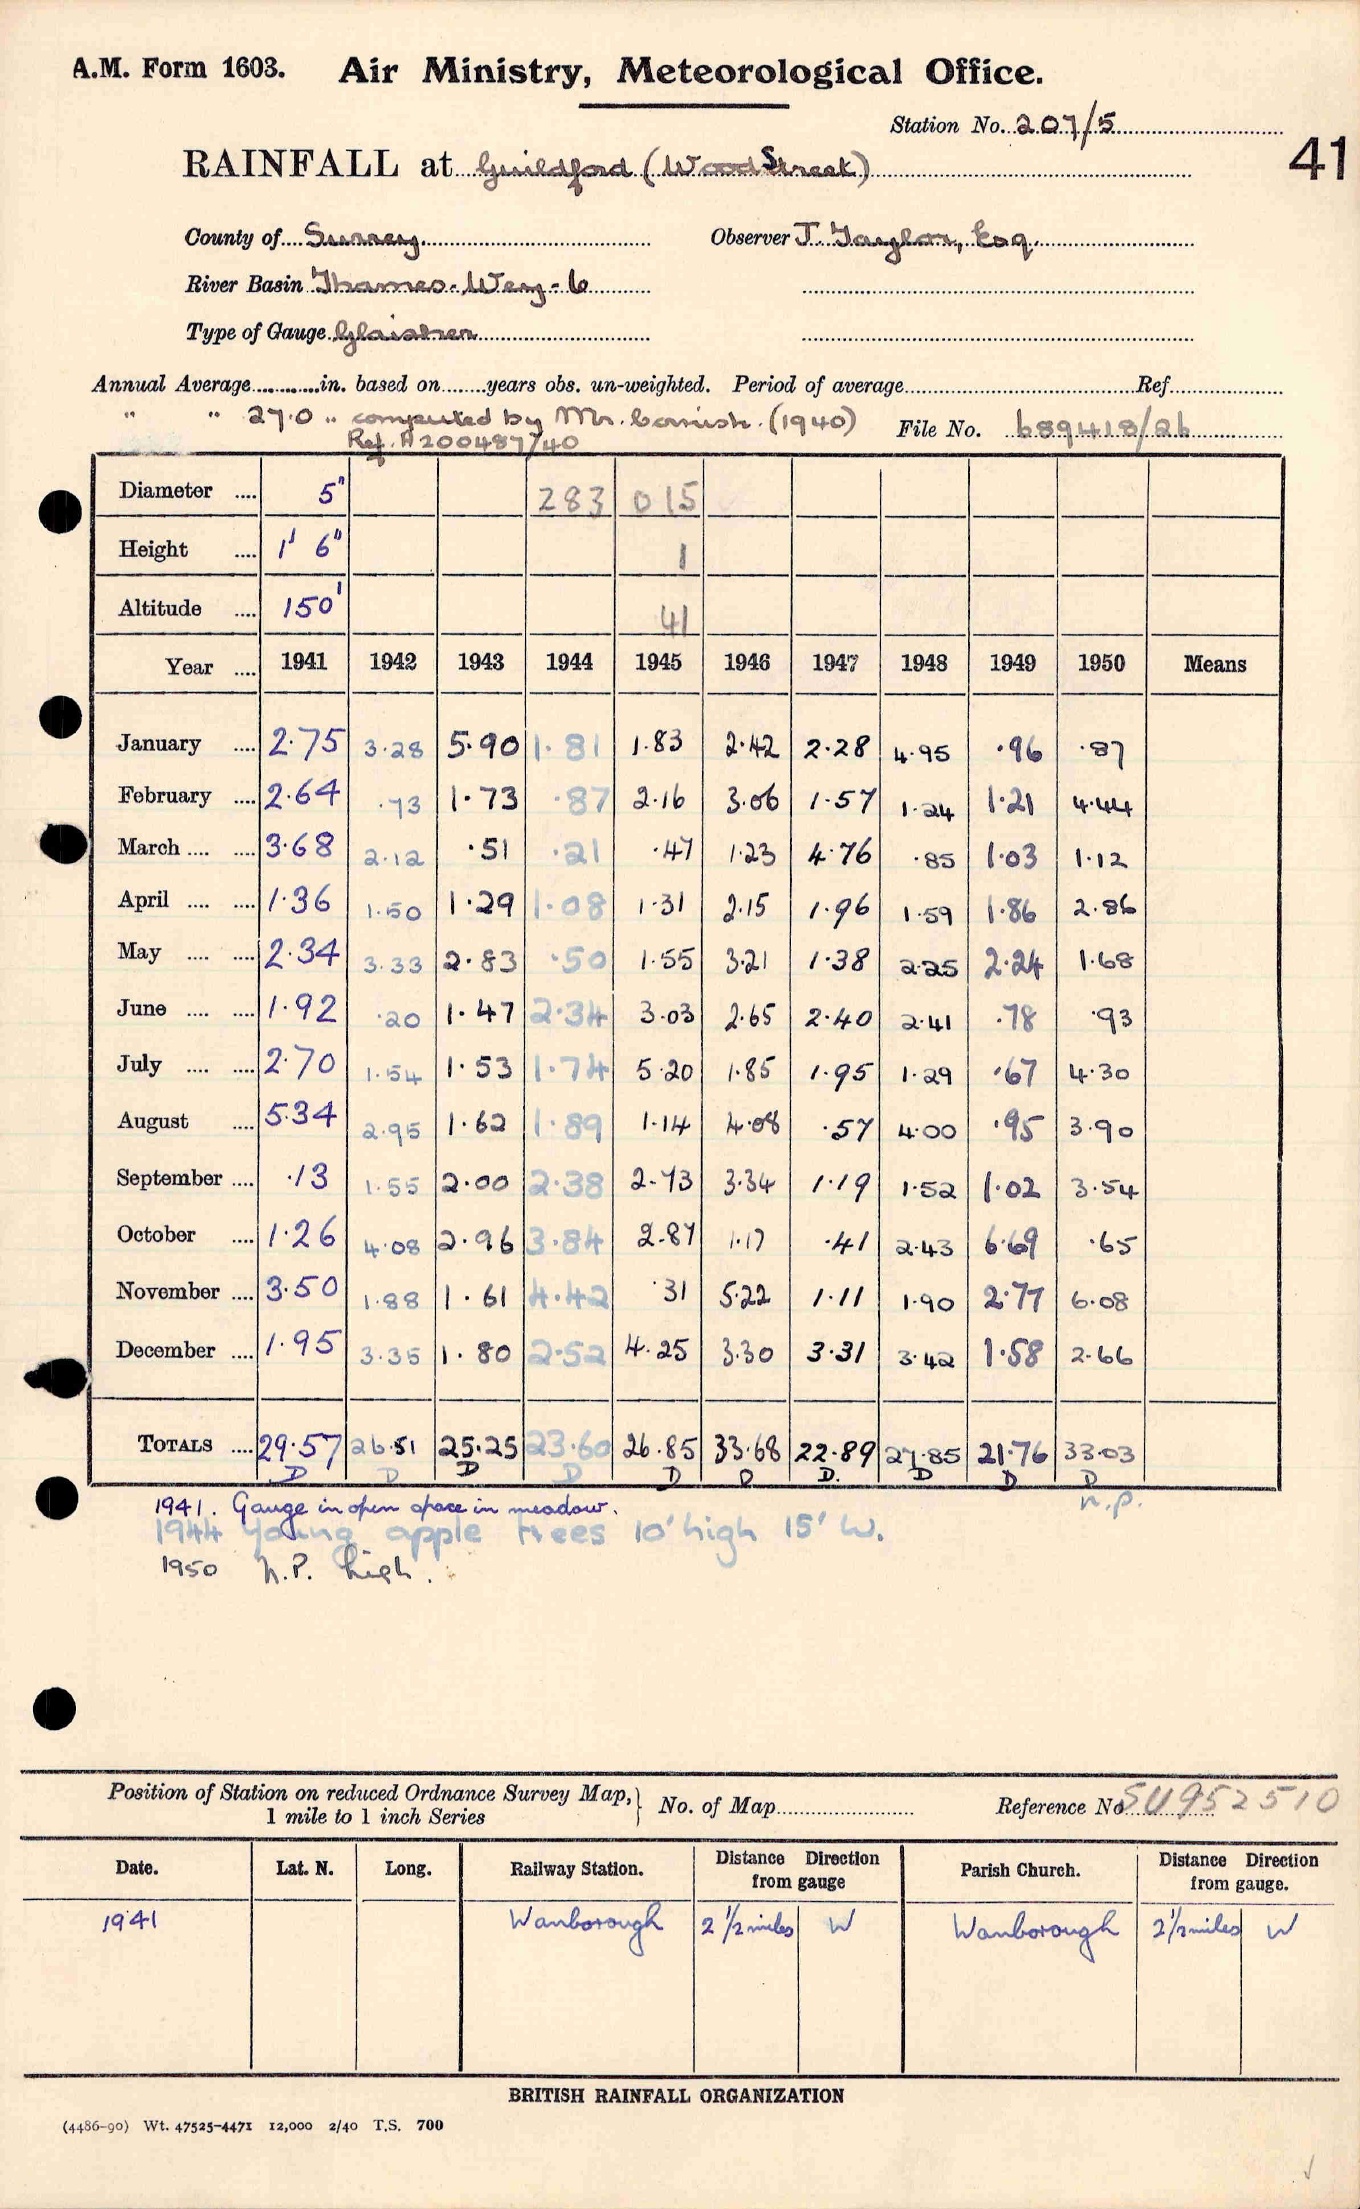 A.M. Form 1603. Air Ministry, Meteorological Office.
Station No. 207/5
41
RAINFALL at Guildford (Wood Street)
County of Surrey Observer J. Taylor, Esq.
River Basin Thames-Wey-6
Type of Gauge Glaisher
Annual Average in. based on years obs. un-weighted. Period of average Ref.
" " 27.0 " computed by Mr. Cornish. (1940) File No. 689418/26
Ref. A200487/40
Diameter 5" 283 015
Height 1' 6" 1
Altitude 150' 41
Year 1941 1942 1943 1944 1945 1946 1947 1948 1949 1950 Means
January 2.75 3.28 5.90 1.81 1.83 2.42 2.28 4.95 .96 .87
February 2.64 .73 1.73 .87 2.16 3.06 1.57 1.24 1.21 4.44
March 3.68 2.12 .51 .21 .47 1.23 4.76 .85 1.03 1.12
April 1.36 1.50 1.29 1.08 1.31 2.15 1.96 1.59 1.86 2.86
May 2.34 3.33 2.83 .50 1.55 3.21 1.38 2.25 2.24 1.68
June 1.92 .20 1.47 2.34 3.03 2.65 2.40 2.41 .78 .93
July 2.70 1.54 1.53 1.74 5.20 1.85 1.95 1.29 .67 4.30
August 5.34 2.95 1.62 1.89 1.14 4.08 .57 4.00 .95 3.90
September .13 1.55 2.00 2.38 2.73 3.34 1.19 1.52 1.02 3.54
October 1.26 4.08 2.96 3.84 2.87 1.17 .41 2.43 6.69 .65
November 3.50 1.88 1.61 4.42 .31 5.22 1.11 1.90 2.77 6.08
December 1.95 3.35 1.80 2.52 4.25 3.30 3.31 3.42 1.58 2.66
TOTALS 29.57 26.51 25.25 23.60 26.85 33.68 22.89 27.85 21.76 33.03
D D D D D D D. D D D
n.p.
1941. Gauge in open space in meadow.
1944 Young apple trees 10' high 15' W.
1950 N.P. high.
Position of Station on reduced Ordnance Survey Map, 1 mile to 1 inch Series } No. of Map Reference No SU952510
Date. Lat. N. Long. Railway Station. Distance Direction from gauge Parish Church. Distance Direction from gauge.
1941 Wanborough 2 1/2 miles W Wanborough 2 1/2 miles W
BRITISH RAINFALL ORGANIZATION
(4486-90) Wt. 47525-4471 12,000 2/40 T.S. 700